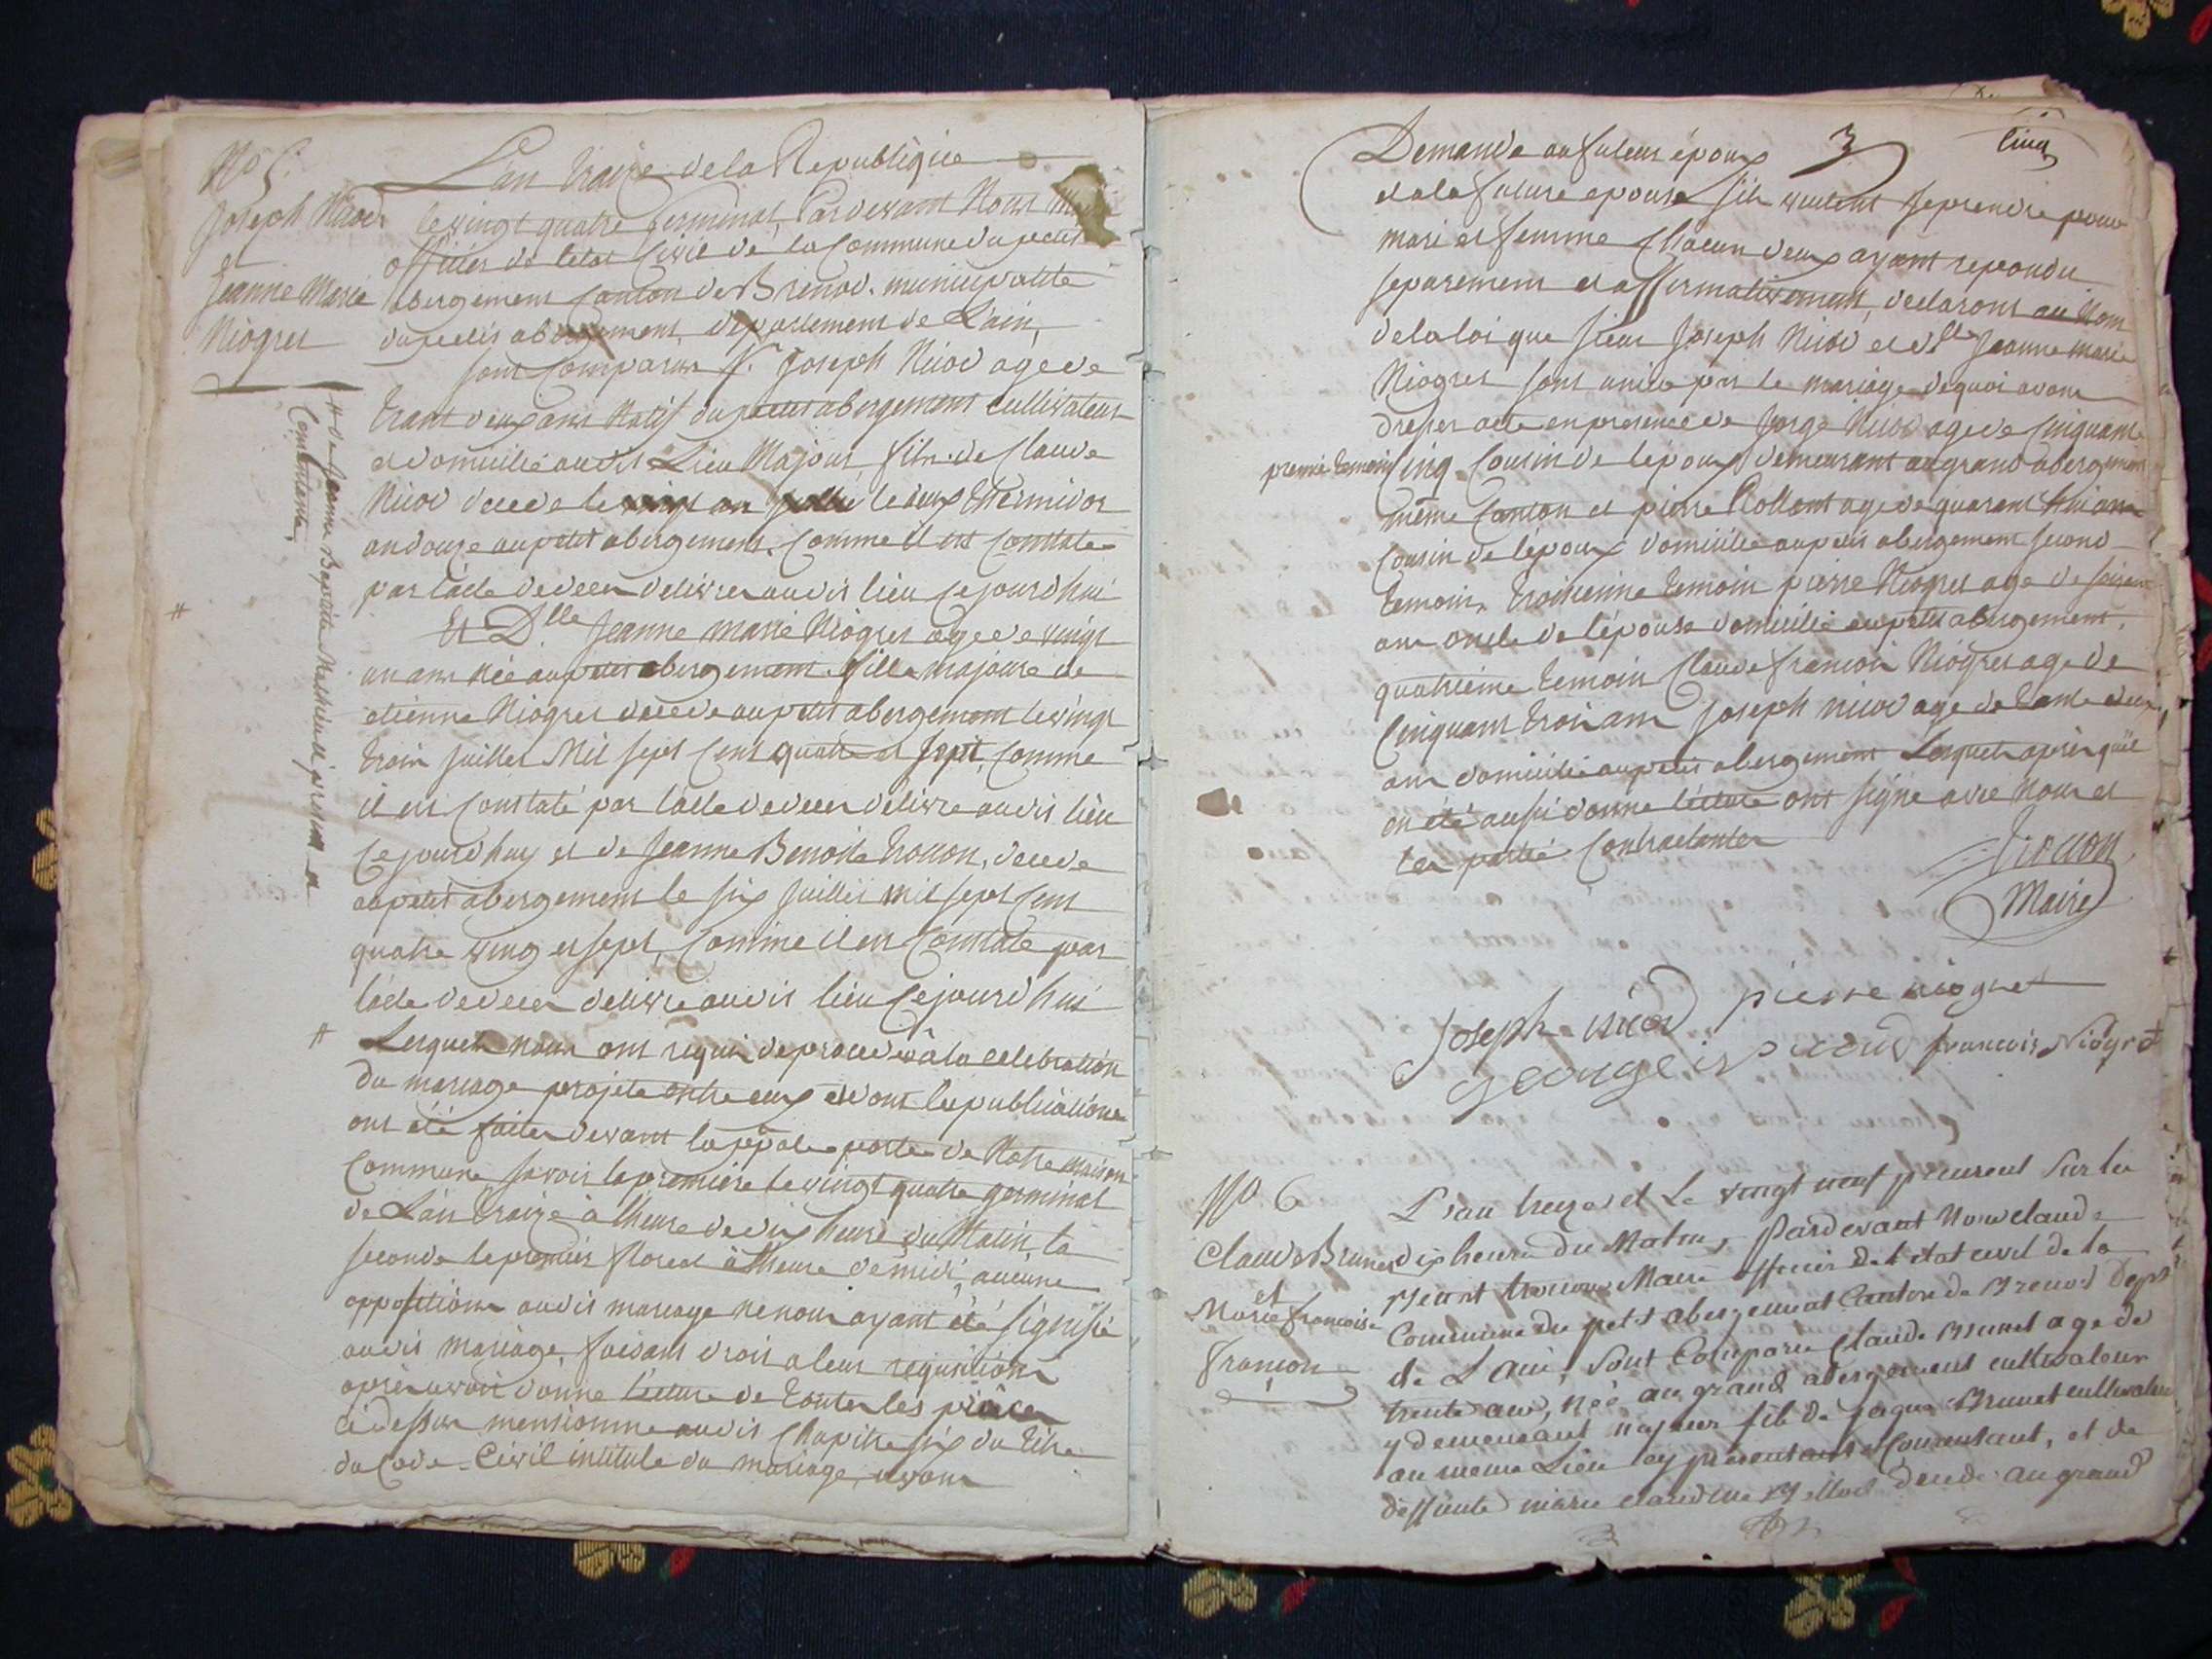 No 5.
Joseph Nicod
et
Jeanne Marie
Niogret
L'an traize de la Republique
le vingt quatre germinal, Pardevant Nous
officier de letat Civil de la Commune du petit
abergement Canton de Brenod. municipalité
du petit abergement, departement de L'ain,
sont Comparus Sr. Joseph Nicod age de
trant deux ans Natif du petit abergement cultivateur
et domicilié audit Lieu Majour fils de Claude
Nicod decede le an le deux thermidor
an douze au petit abergement. Comme il est Constate
par l'acte de deces delivrer audit lieu ce jourd'hui
#
Et Dlle Jeanne marie Niogret age de vingt
un ans née au petit abergement fille majoure de
etienne Niogret decede au petit abergement le vingt
trois juillet Mil sept Cent quatre et sept, Comme
il est Constaté par l'acte de deces delivre audit lieu
ce jourd'huy et de Jeanne Benoite trocon, decede
au petit abergement le six juillet mil sept Cent
quatre ving et sept, Comme il est Constate par
l'acte de deces delivre audit lieu ce jourd'hui
# de Jeanne Baptiste Mathieu ici presant et
Consentante
# Lesquels nous ont requis de proceder à la celebration
du mariage projete entre eux et dont les publications
ont été faites devant la ppale porte de Notre maison
Commune savoir la premiere le vingt quatre germinal
de L'an traize à l'heure de dix heure du Matin, la
seconde le premier floreal à l'heure de midi, aucune
opposition audit mariage ne nous ayant été signifié
audit mariage, faisant droit a leur requisition
apres avoir donne lecture de toutes les pieces
ci dessus mensionne audit Chapitre six du titre
du Code Civil intitule du mariage, avons
3
Cinq
Demande au futeur époux
et a la future epouse s'ils veulent se prendre pour
mari et femme Chacun deux ayant repondu
separement et affirmativement, declarons au Nom
de la loi que sieur Joseph Nicod et dlle Jeanne marie
Niogret sont unies par le mariage de quoi avons
dresser acte en presence de Jorge Nicod age de Cinquante
premie temoin Cinq Cousin de l'epoux demeurant au grand abergement
même Canton et pierre Rolland age de quarant huit ans
Cousin de l'époux domicilie au petit abergement second
temoin, troisieme temoin pierre Niogret age de soixant
ans oncle de l'épouse domicilié au petit abergement.
quatrieme temoin Claude françois Niogret age de
Cinquant trois ans Joseph nicod age de trante deux
ans domicilie au petit abergement Lesquels apres quil
en été aussi donne lecture ont signe avec Nous et
les partie Contractantes
Trocon
Maire
Joseph nicod pierre niogret
george nicoud francois Niogret
No 6
Claude Brunet
et
Marie francoise
Francon
L'an treize et Le vingt neuf preureal sur les
dix heure du Matin, Pardevant Nous claude
trocon Maire officier de l'état civil de la
Commune du petit abergement Canton de Brenod Dept
de L'ain, sont Comparu Claude Brunet age de
trente ans, née au grand abergement cultivateur
y demeurant majeur fils de Brunet cultivateur
au meme Lieu cy present et Consentant, et de
deffunte marie claudine decede au grand